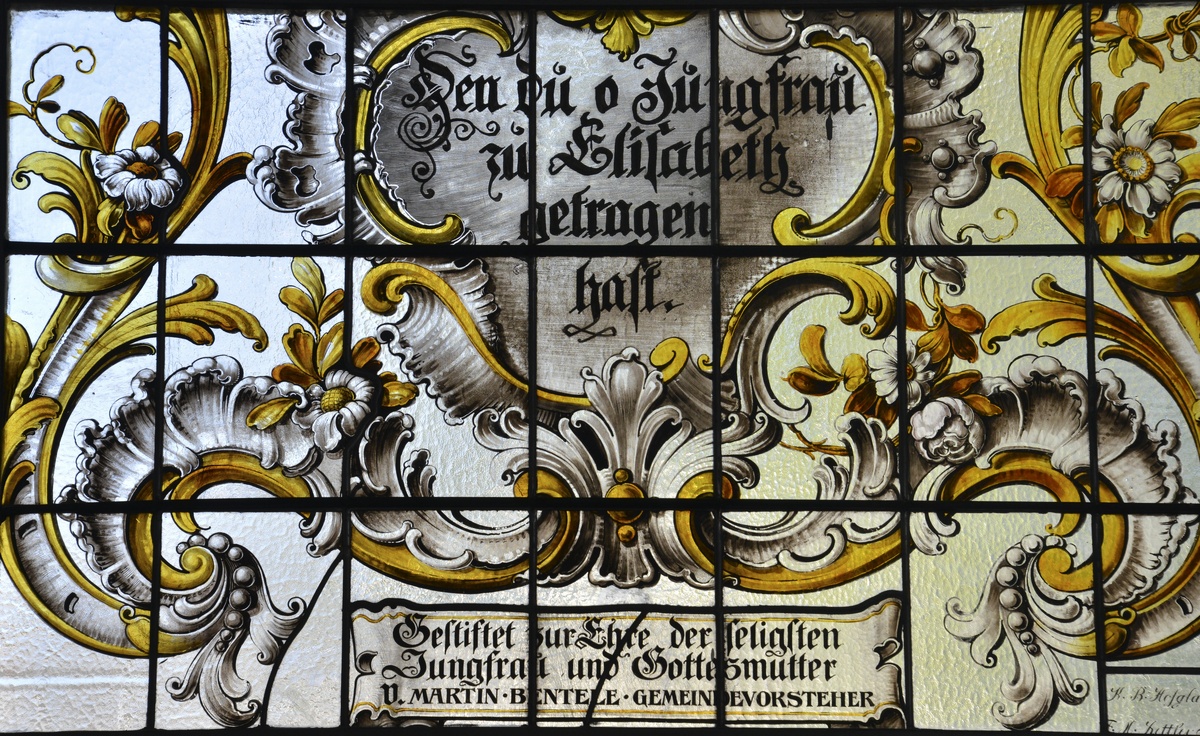 Den du o Jungfrau
zu Elisabeth
getragen
hast.
Gestiftet zur Ehre der seligsten
Jungfrau und Gottesmutter
V. MARTIN · BENTELE · GEMEINDEVORSTEHER
K. B. Hofgla
F. X. Zettler